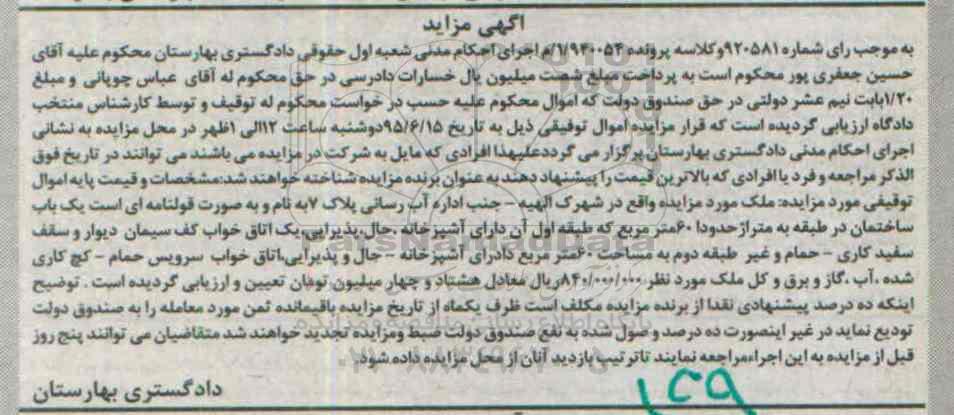 آگهی مزاید
به موجب رای شماره ۹۲۰۵۸۱وکلاسه پرونده ۱/۹۴۰۰۵۴/م اجرای احکام مدنی شعبه اول حقوقی دادگستری بهارستان محکوم علیه آقای
حسین جعفری پور محکوم است به پرداخت مبلغ شصت میلیون یال خسارات دادرسی در حق محکوم له آقای عباس چوپانی و مبلغ
۱/۲۰بابت نیم عشر دولتی در حق صندوق دولت که اموال محکوم علیه حسب در خواست محکوم له توقیف و توسط کارشناس منتخب
دادگاه ارزیابی گردیده است که قرار مزایده اموال توقیفی ذیل به تاریخ ۹۵/۶/۱۵دوشنبه ساعت ۱۲الی ۱ظهر در محل مزایده به نشانی
اجرای احکام مدنی دادگستری بهارستان برگزار می گرددعلیهذا افرادی که مایل به شرکت در مزایده می باشند می توانند در تاریخ فوق
الذکر مراجعه و فرد یا افرادی که بالاترین قیمت را پیشنهاد دهند به عنوان برنده مزایده شناخته خواهند شد:مشخصات و قیمت پایه اموال
توقیفی مورد مزایده: ملک مورد مزایده واقع در شهرک الهیه – جنب اداره آب رسانی پلاک ۷به نام و به صورت قولنامه ای است یک باب
ساختمان در طبقه به متراژحدودا ۶۰متر مربع که طبقه اول آن دارای آشپزخانه ،حال،پذیرایی،یک اتاق خواب کف سیمان دیوار و سقف
سفید کاری – حمام و غیر طبقه دوم به مساحت ۶۰متر مربع دادرای آشپزخانه – حال و پذیرایی،اتاق خواب سرویس حمام – کچ کاری
شده ،آب ،گاز و برق و کل ملک مورد نظر ریال معادل هشتاد و چهار میلیون تومان تعیین و ارزیابی گردیده است . توضیح
اینکه ده درصد پیشنهادی نقدا از برنده مزایده مکلف است ظرف یکماه از تاریخ مزایده باقیمانده ثمن مورد معامله را به صندوق دولت
تودیع نماید در غیر اینصورت ده درصد وصول شده به نفع صندوق دولت ضبط ومزایده تجدید خواهند شد متقاضیان می توانند پنج روز
قبل از مزایده به این اجراءمراجعه نمایند تاترتیب بازدید آنان از محل مزایده داده شود.
دادگستری بهارستان
ParsNamadData